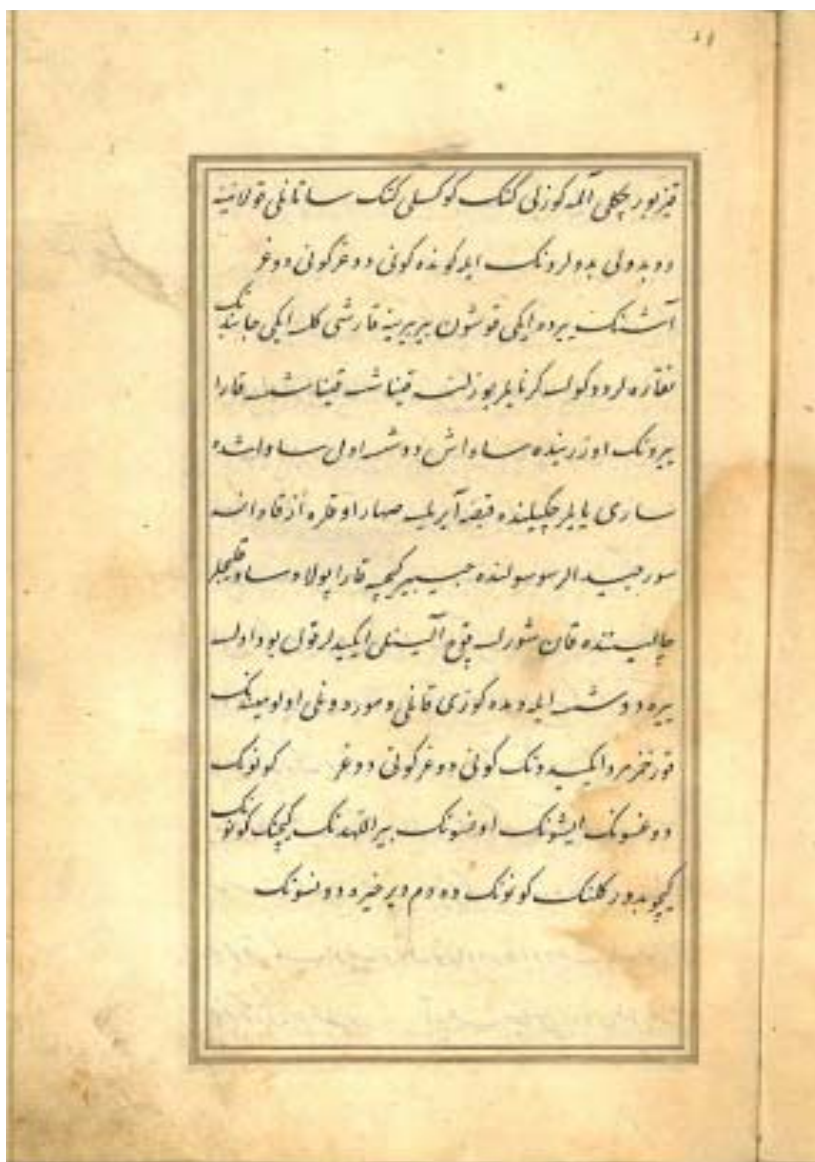 قیزبورچکلی آلمه کوزلی گنگ کوکسلی کنک ساتانلی قولانینه
دوبدولی بدولرونک ایله کونده کونی دوغر کونی دوغر
آستنک ییرده ایکی قوشون بیربیرینه قارشی کله ایکی جانبدنک
نقاره لر دوکولب کرنایلر بوزلنب قیناشب قیناشنب قارا
ییرونک اوزرینده ساواش دوشب اول ساواشده
ساری یایلر چکیلنده قبضه آیریلیب اوقلره
سورجیدالر سوسولنده جیبیر کیچه قارا پولاد ساو قلیجلر
چالیننده قان شورلب قوچ آلینلی ایکیدلر قول بوداولب
ییره دوشب ایله ده کوزی قانلی اولومیندنک
قورخمز مرد ایکیدونک کونی دوغر کونی دوغر کونونک
دوغسونک ایشونک اوغسونک بیراللهدنک کیچنک کونونک
کیچوبدور کلنک کونونک ده وم دیر خیر دونسونک